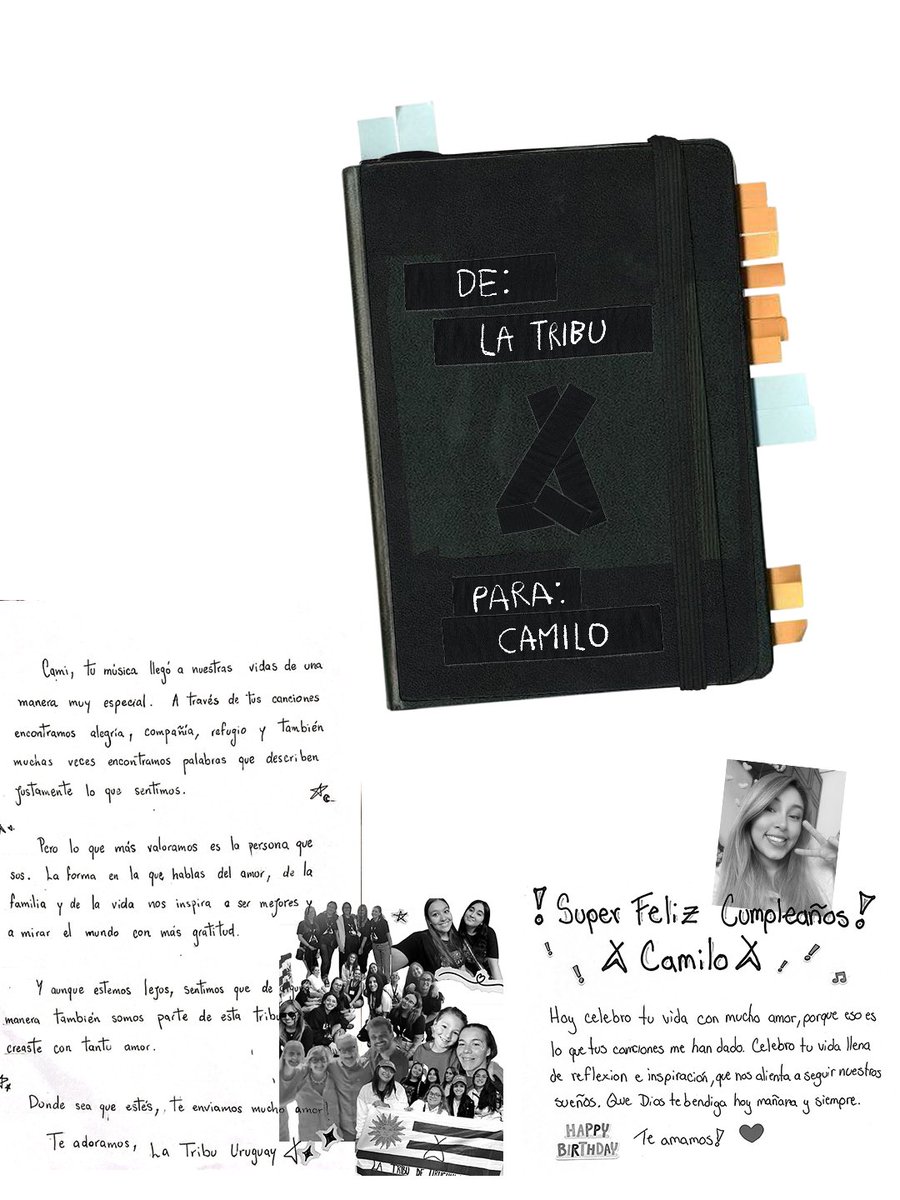 DE:
LA TRIBU
PARA:
CAMILO
Cami, tu música llegó a nuestras vidas de una
manera muy especial. A través de tus canciones
encontramos alegría, compañía, refugio y también
muchas veces encontramos palabras que describen
justamente lo que sentimos.
Pero lo que más valoramos es la persona que
sos. La forma en la que hablas del amor, de la
familia y de la vida nos inspira a ser mejores y
a mirar el mundo con más gratitud.
Y aunque estemos lejos, sentimos que de
manera también somos parte de esta tribu
creaste con tanto amor.
Donde sea que estés, te enviamos mucho amor!
Te adoramos, La Tribu Uruguay
LA TRIBU DE URUGUAY
¡Super Feliz Cumpleaños!
Camilo
Hoy celebro tu vida con mucho amor, porque eso es
lo que tus canciones me han dado. Celebro tu vida llena
de reflexion e inspiración, que nos alienta a seguir nuestros
sueños. Que Dios te bendiga hoy mañana y siempre.
HAPPY
BIRTHDAY
Te amamos!